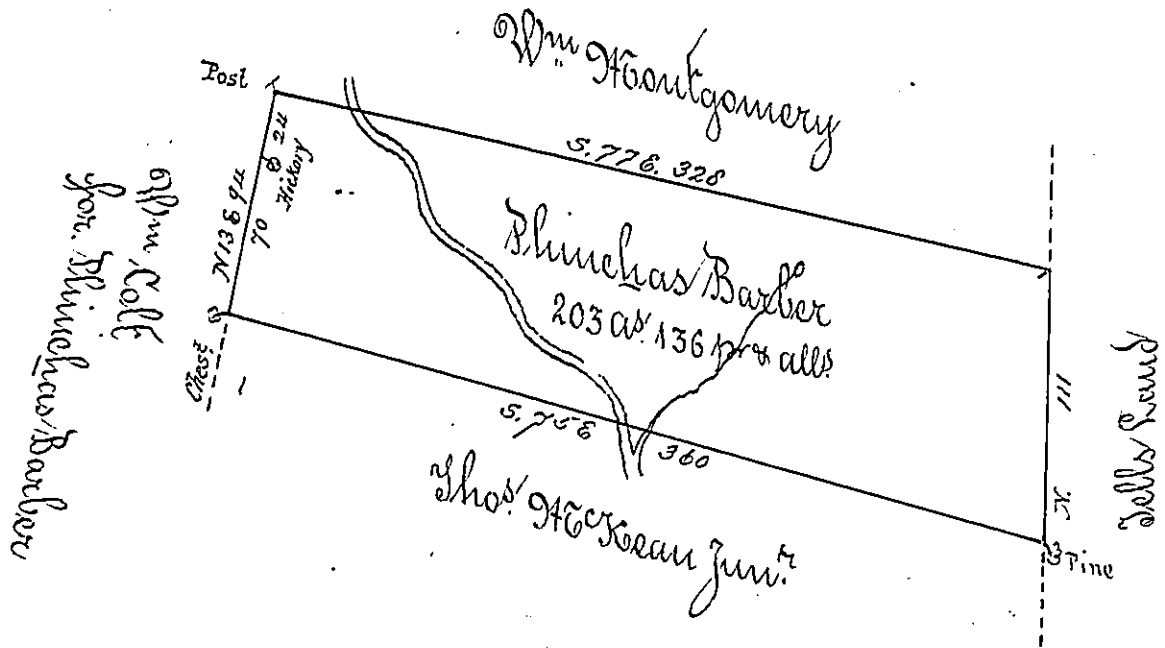 Wm Montgomery
Post
S. 77 E. 328
24
Hickory
N 13 E 94
70
Phinehas Barber
203 as. 136 prs & alls.
Wm Colt
for. Phinehas Barber
Chest
S. 75 E
360
Thos. McKean Junr.
N. 111
Tells Land
Pine